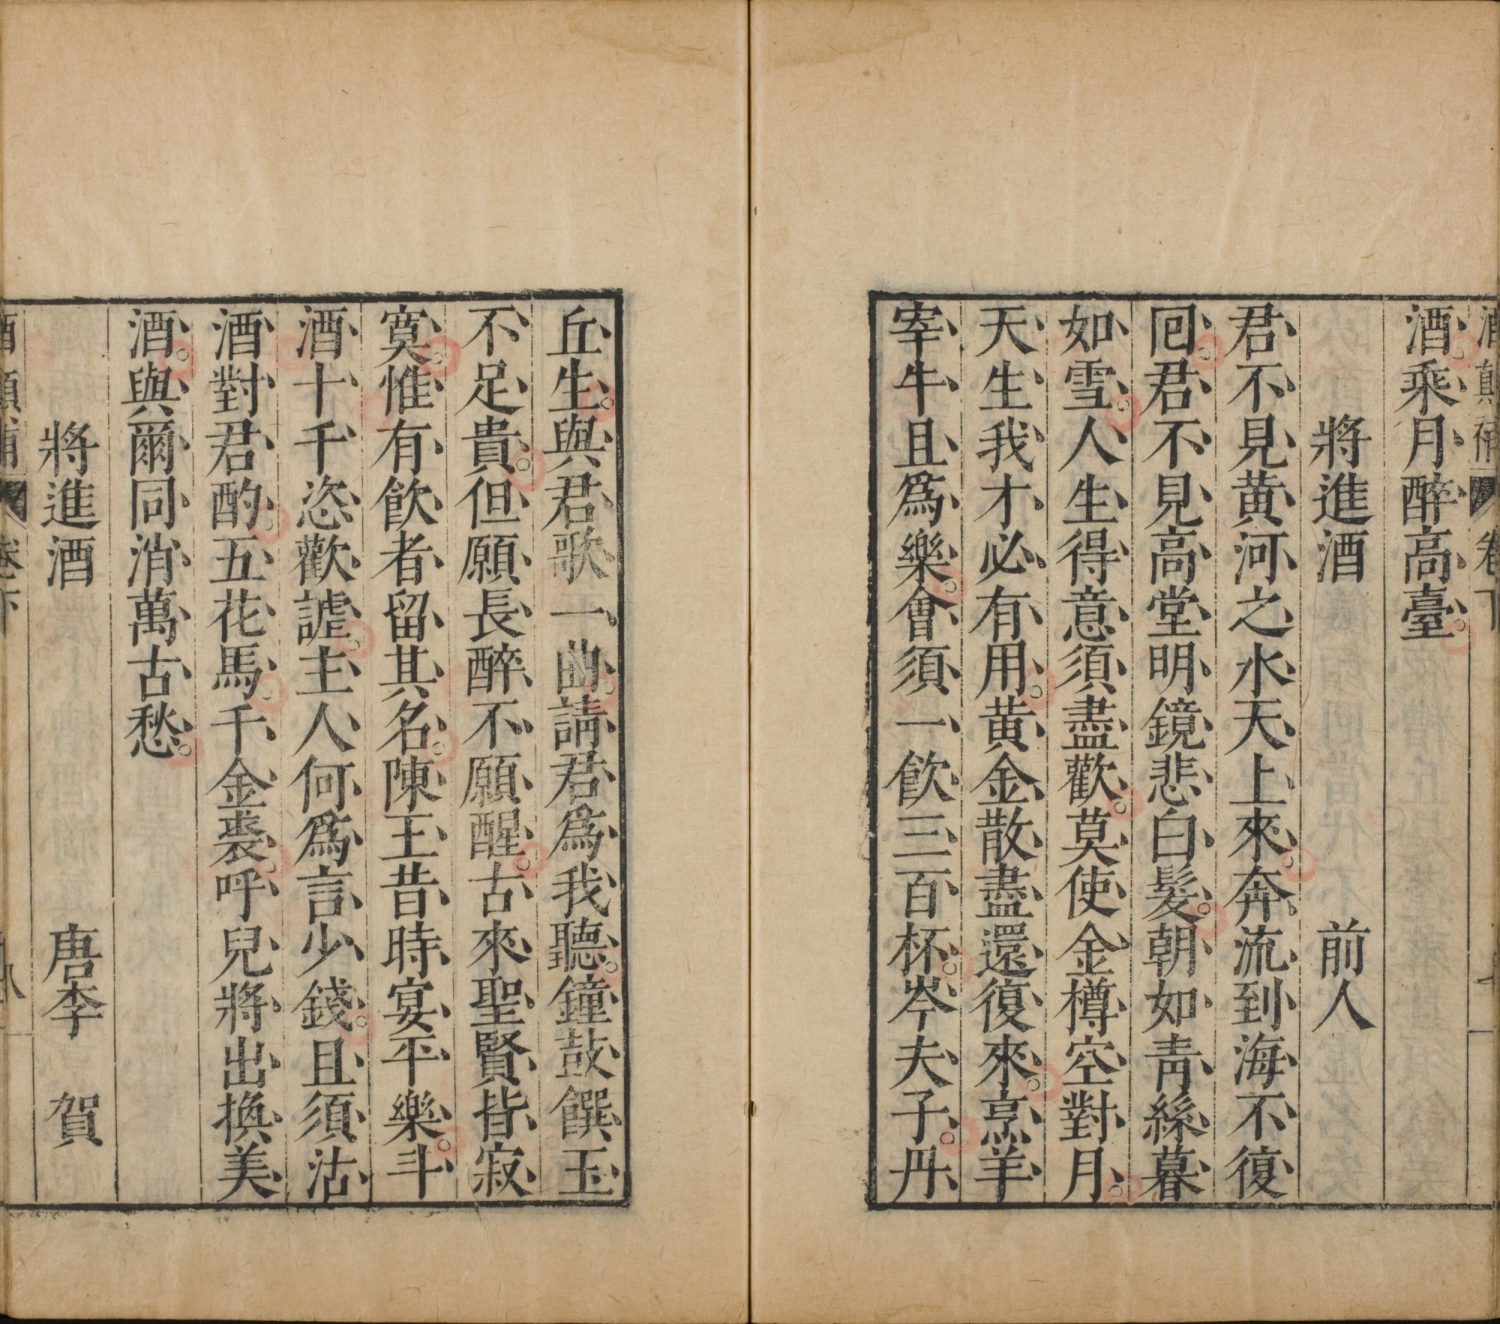 酒顛補 卷下
酒乘月醉高臺
將進酒 前人
君不見黄河之水天上來奔流到海不復
回君不見高堂明鏡悲白髪朝如青絲暮
如雪人生得意須盡歡莫使金樽空對月
天生我才必有用黄金散盡還復來烹羊
宰牛且爲樂會須一飲三百杯岑夫子丹
丘生與君歌一曲請君爲我聽鐘鼓饌玉
不足貴但願長醉不願醒古來聖賢皆寂
寞惟有飲者留其名陳王昔時宴平樂斗
酒十千恣歡謔主人何爲言少錢且須沽
酒對君酌五花馬千金裘呼兒將出換美
酒與爾同消萬古愁
將進酒 唐李賀
酒顛補 卷下 八